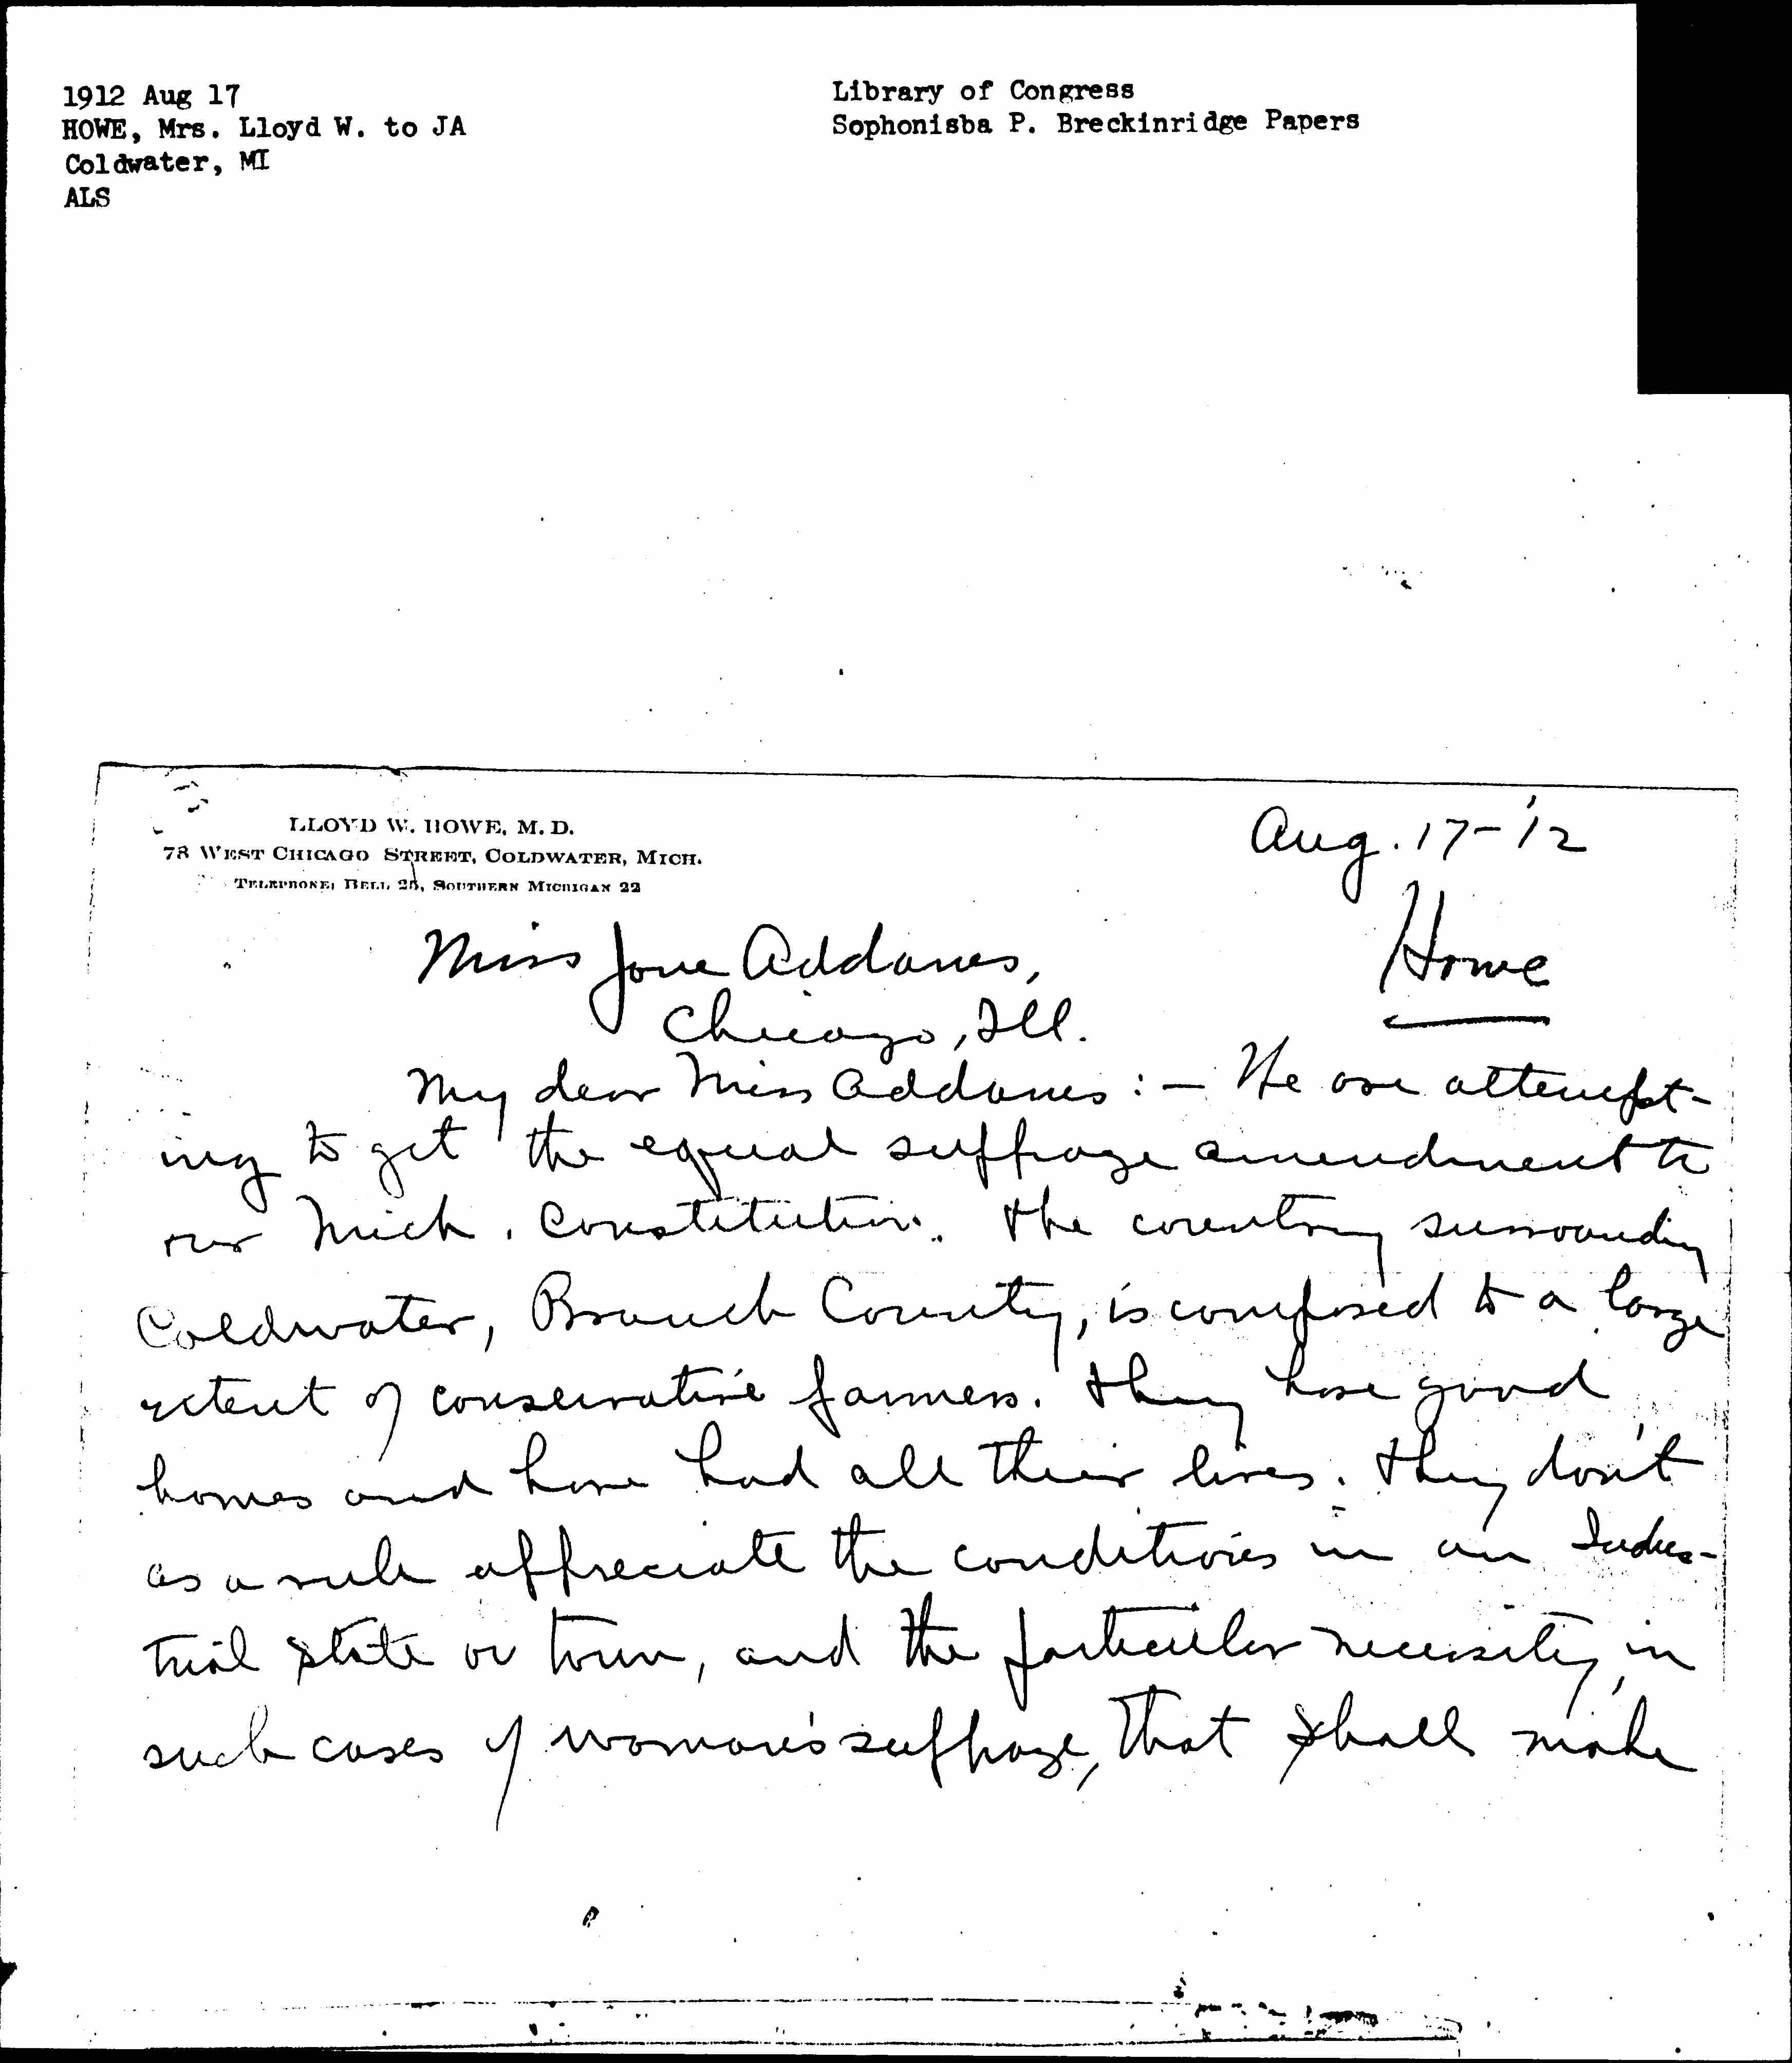 1912 Aug 17
HOWE, Mrs. Lloyd W. to JA
Coldwater, MI
ALS
Library of Congress
Sophonisba P. Breckinridge Papers
LLOYD W. HOWE, M. D.
78 WEST CHICAGO STREET, COLDWATER, MICH.
TELEPHONE: BELL 25, SOUTHERN MICHIGAN 22
Aug. 17-'12
Howe
Miss Jane Addams,
Chicago, Ill.
My dear Miss Addams:— We are attempt-
ing to get the equal suffrage amendment to
our Mich. Constitution. The country surrounding
Coldwater, Branch County, is composed to a large
extent of conservative farmers. They have good
homes and have had all their lives. They don't
as a rule appreciate the conditions in an Indus-
trial state or town, and the particular necessity, in
such cases of woman's suffrage, that shall make